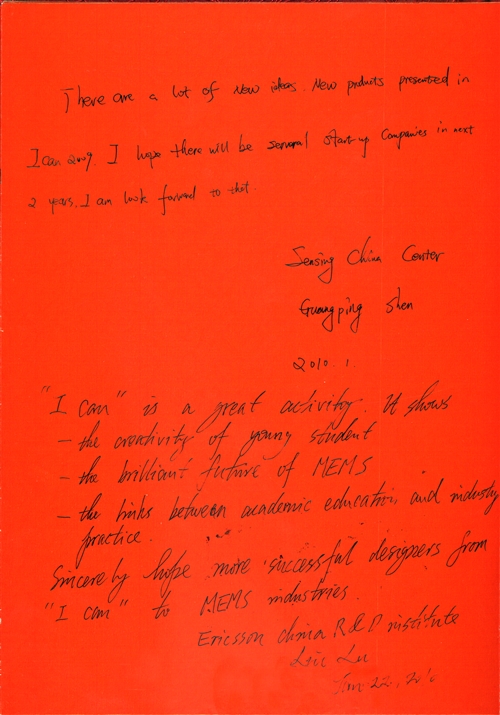 There are a lot of New ideas. New products presented in
I can 2009. I hope there will be serveral start-up Companies in next
2 years. I am look forward to that.
Sensing China Center
Guangping Shen
2010. 1.
"I can" is a great activity. It shows
– the creativity of young student
– the brilliant future of MEMS
– the links between academic education and industry
practice.
Sincerely hope more successful designers from
"I can" to MEMS industries.
Ericsson China R&D institute
Lu
Jan 22, 2010